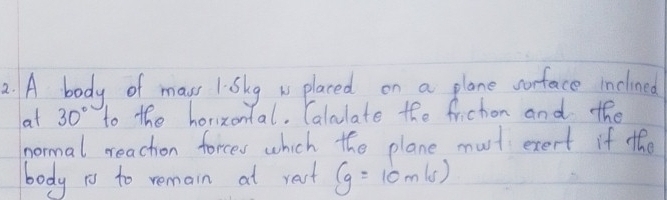 2. A body of mass 1.5kg is placed on a plane surface inclined
at 30° to the horizontal. Calculate the friction and the
normal reaction forces which the plane must exert if the
body is to remain at rest (g = 10m/s)